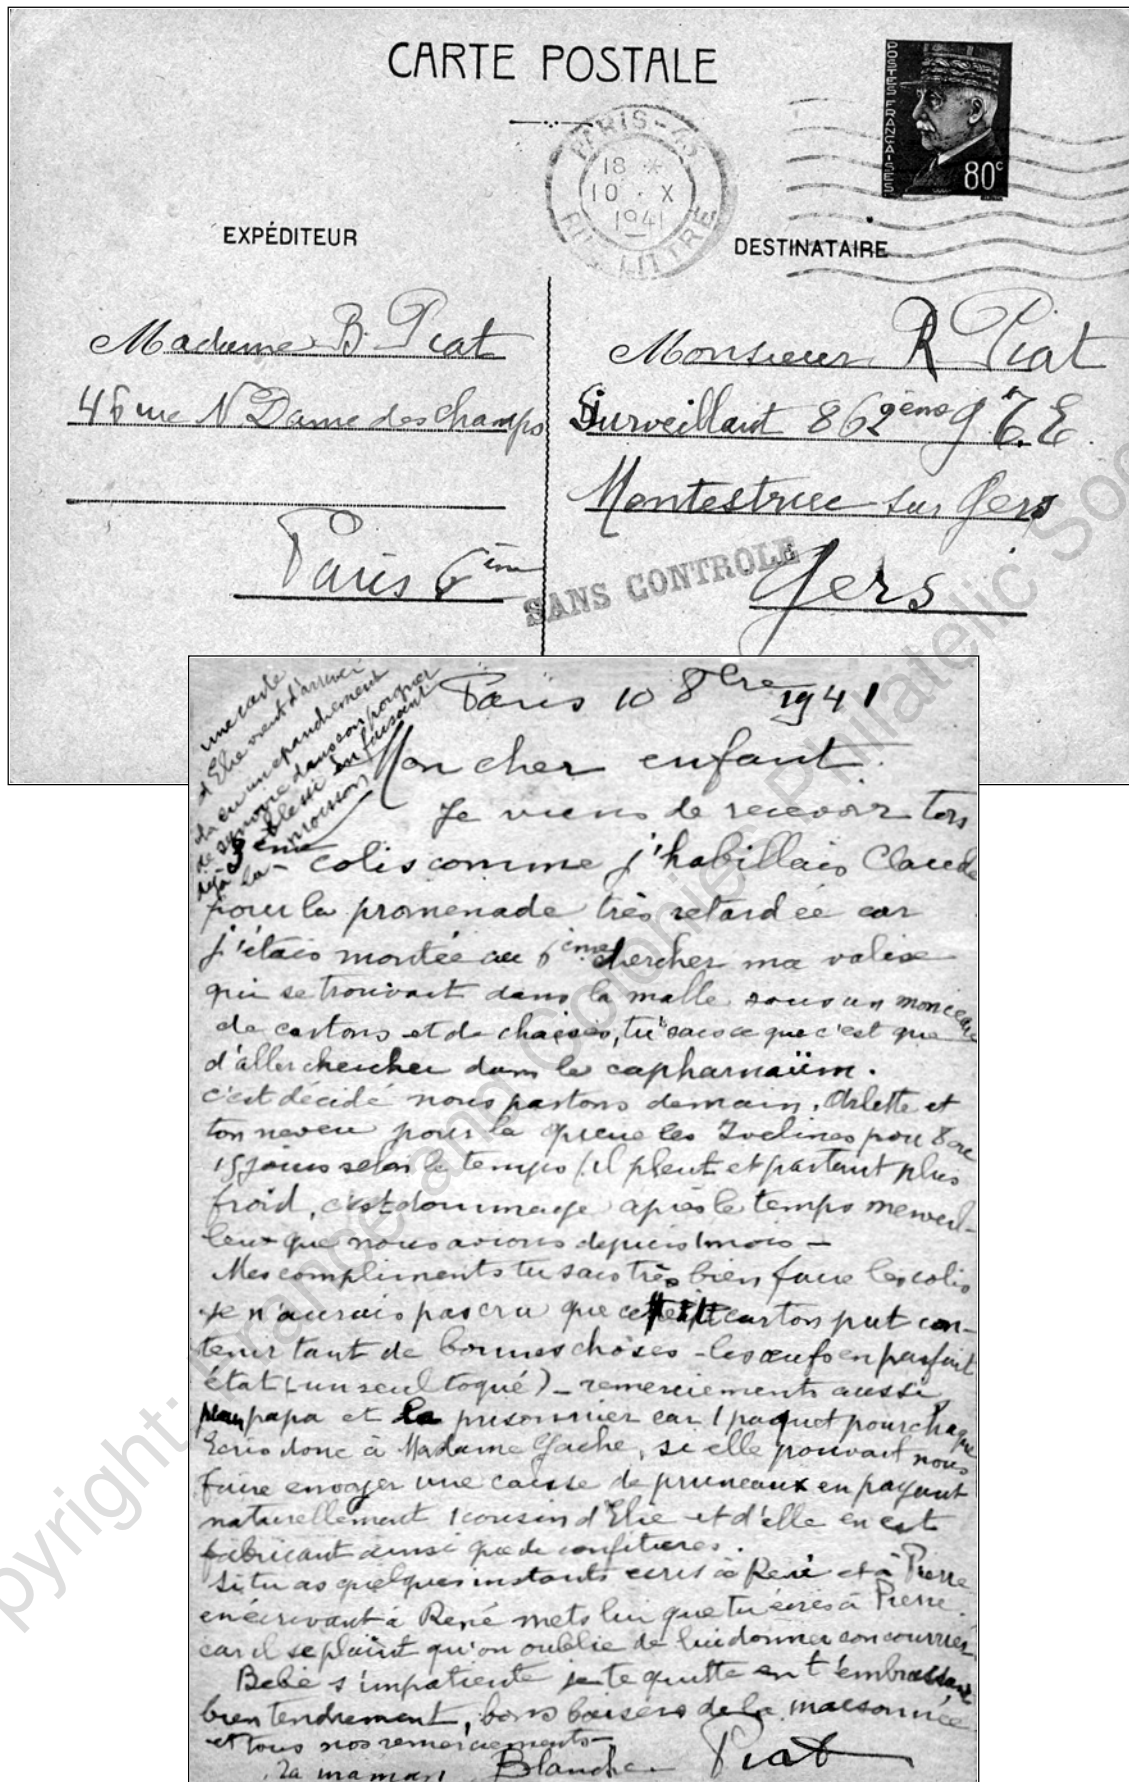 CARTE POSTALE
POSTES FRANÇAISES
80c
PARIS-43
18 *
10 · X
1941
RUE LITTRE
EXPÉDITEUR
DESTINATAIRE
Madame B. Piat
46 rue N Dame des Champs
Paris 6ème
Monsieur R Piat
Surveillant 862ème G.T.E.
Montestruc sur Gers
Gers
SANS CONTROLE
une carte
d'Elie vient d'arriver
il a eu un épanchement
de synovie dans son
déjà blessé en faisant
la moisson
Paris 10 8bre 1941
Mon cher enfant.
Je viens de recevoir ton
3ème colis comme j'habillais Claude
pour la promenade très retardée car
j'étais montée au 6ème chercher ma valise
qui se trouvait dans la malle sous un monceau
de cartons et de chaises, tu sais ce que c'est que
d'aller chercher dans le capharnaüm.
c'est décidé nous partons demain, Arlette et
ton neveu pour la queue les Yvelines pour 8 ou
15 jours selon le temps (il pleut et partant plus
froid, c'est dommage après le temps merveil-
leux que nous avions depuis 1 mois -
Mes compliments tu sais très bien faire les colis
je n'aurais pas cru que ce petit carton put con-
tenir tant de bonnes choses - les œufs en parfait
état (un seul toqué) - remerciements aussi
pour papa et le prisonnier car 1 paquet pour chaque
Ecris donc à Madame Gache, si elle pouvait nous
faire envoyer une caisse de pruneaux en payant
naturellement 1 cousin d'Elie et d'elle en est
fabricant ainsi que de confitures.
Si tu as quelques instants écris à René et à Pierre
en écrivant à René mets lui que tu écris à Pierre.
car il se plaint qu'on oublie de lui donner son courrier
Bébé s'impatiente je te quitte en t'embrassant
bien tendrement, bons baisers de la maisonnée
et tous nos remerciements
Ta maman Blanche Piat
pyright: France and Colonies Philatelic Soc